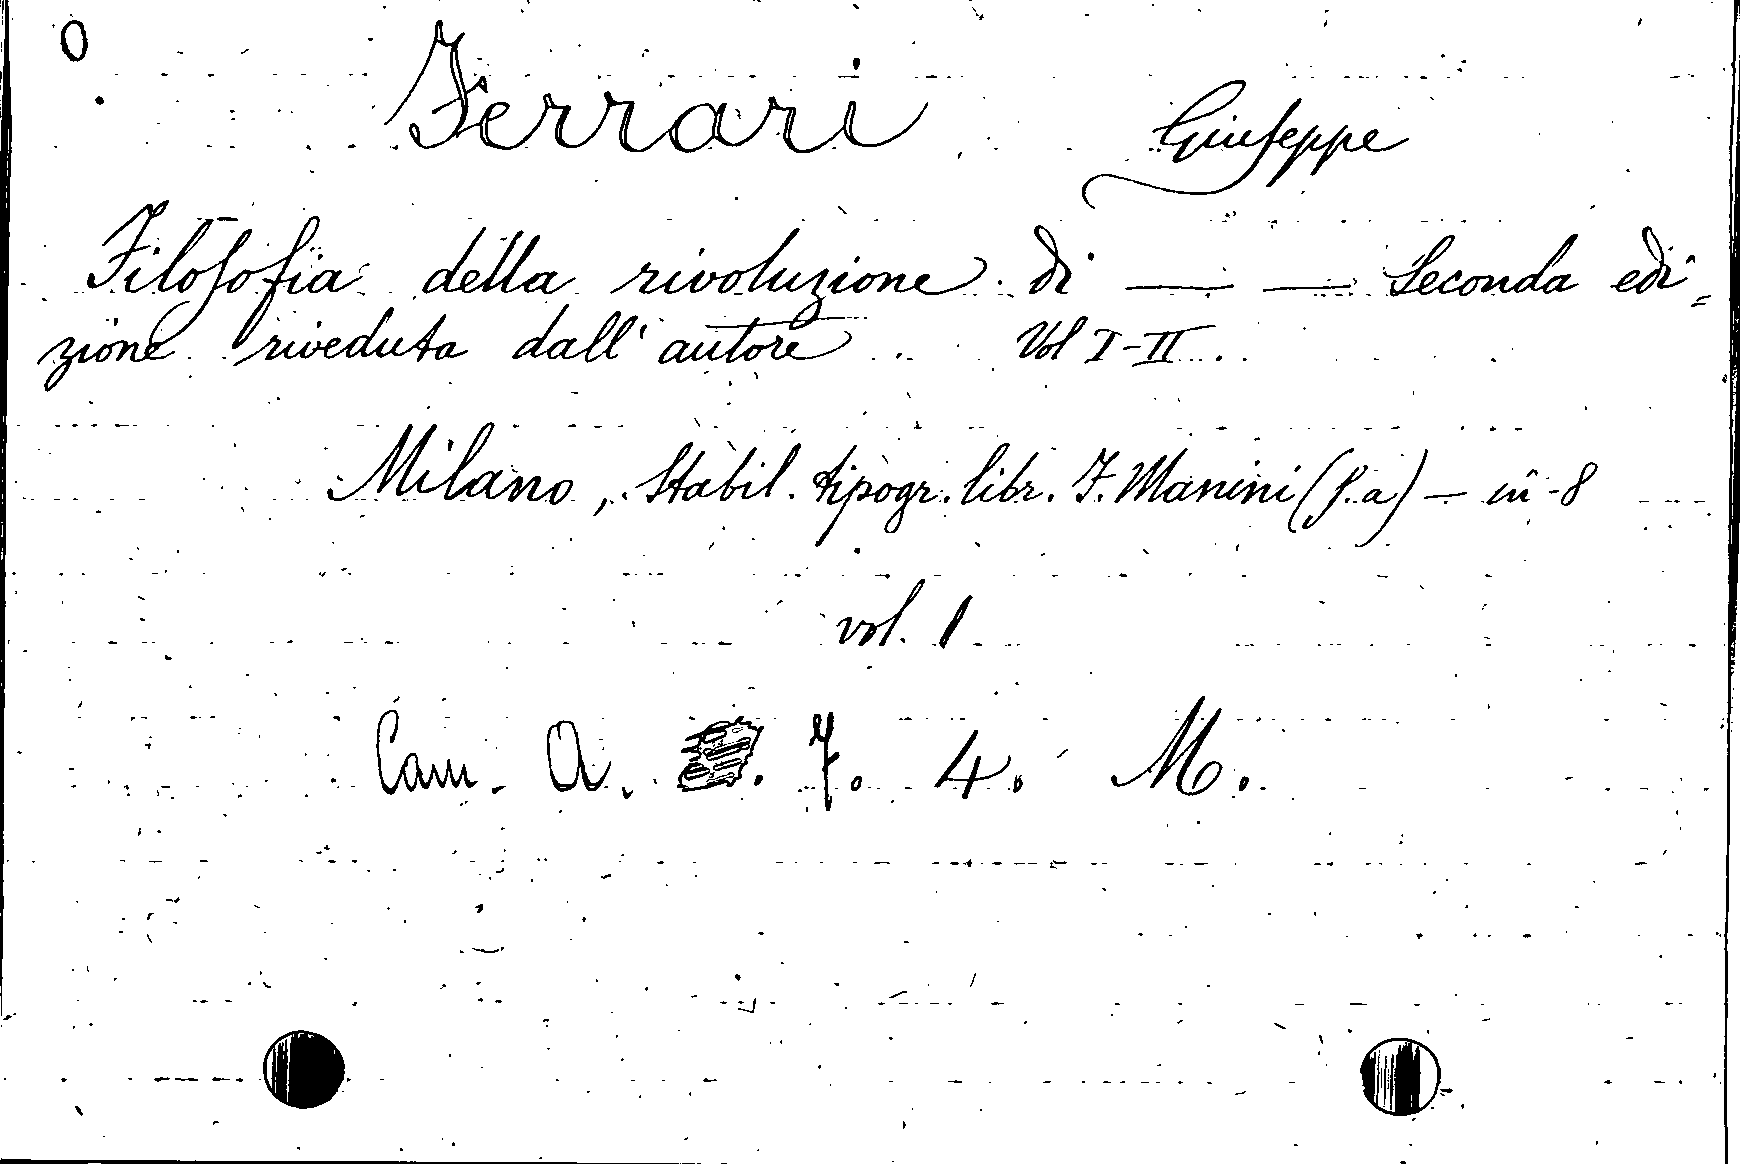 0
Ferrari Giuseppe
Filosofia della rivoluzione di — — Seconda edi=
zione riveduta dall'autore Vol I-II.
Milano, Stabil. tipogr. libr. F. Manini (s. a) — in-8
vol. 1
Cam. A. 7. 4. M.